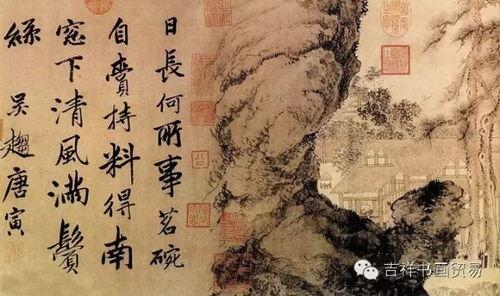 日長何所事茗碗
自賫持料得南
窓下清風滿鬢
絲 吳趨唐寅
吉祥书画贸易